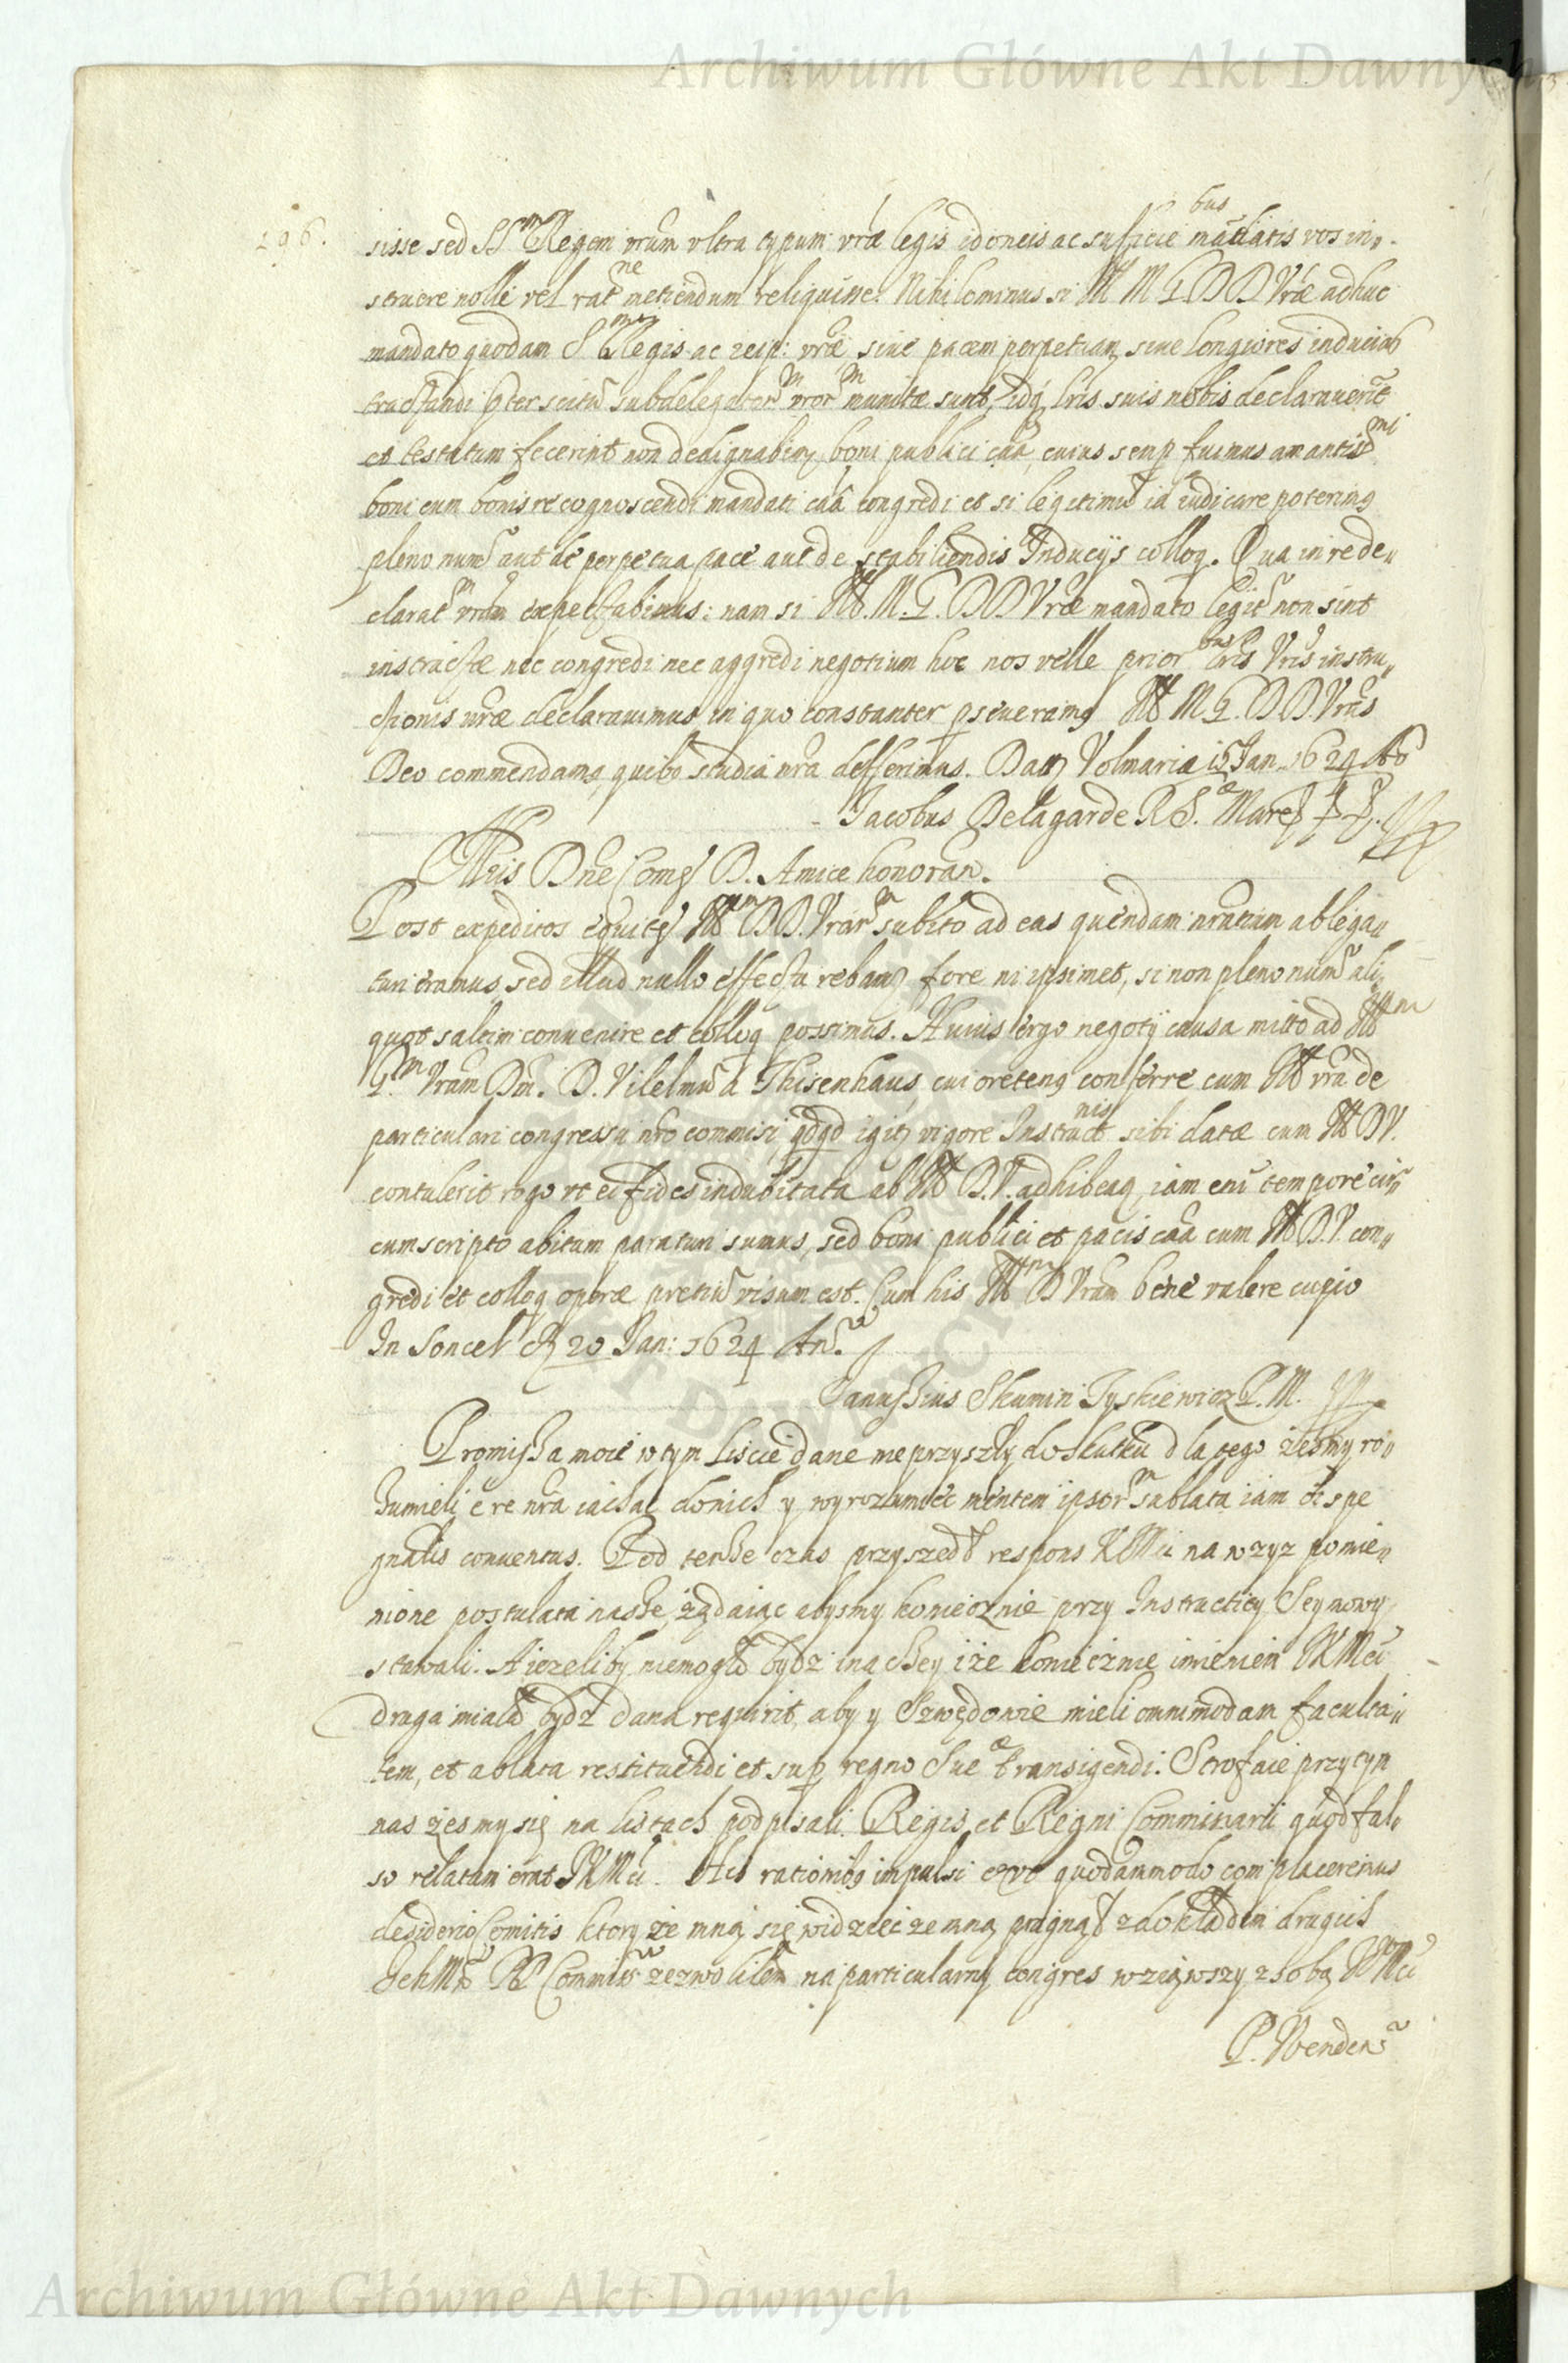 Archiwum Główne Akt Dawnych
296.
sisse sed SSm Regem vrum vltra typum vrae legis idoneis ac sufficie bus mandatis vos in„
struere nolle vel ratne metiendum reliquisse. Nihilominus si Ill M G. DD Vrae adhuc
mandato quodam Smi Regis ac reip: vrae siue pacem perpetuam siue longiores inducias
tractandi pter scitu subdelegatorm vrorm munitae sunt, idq lris suis nobis declarauerit
et testatum fecerint non dedignabimq boni publici caa, cuius semp fuimus amantissmi
boni cum bonis recognoscendi mandati caa congredi et si legitimu id iudicare poterimq
pleno numo aut de perpetua pace aut de stabiliendis Inducijs colloq. Qua in re de„
claratm vram expectabimus: nam si Ill. M. G. DD Vrae mandato legito non sint
instructae nec congredi nec aggredi negotium hoc nos velle priorbus lris Vris instru„
ctionis nrae declarauimus in quo constanter pseueramq Ill M G. DD. Vras
Deo commendamq, quibq studia nra defferimus. Datq Volmariae 15 Jan. 1624 Ao
Jacobus Delagarde R S.ae Mares
Illris Dne Comes D. Amice honoran.
Post expeditos equites Illum DD. Vrarm subito ad eas quendam nratium ablega„
turi eramus sed illud nullo effectu rebamq fore ni ipsimet, si non pleno numo ali„
quot saltim conuenire et colloq possimus. Huius ergo negotij causa mitto ad Illm
G.m Vram Dm. D. Vilelmu a Thisenhaus cui oretenq conferre cum Ill vra de
particulari congressu nro commisi, qdqd igitq vigore Instructnis sibi datae cum Ill DV.
contulerit rogo vt ei fides indubitata ab Ill D.V. adhibeaq, iam eni tempore cir„
cumscripto abitum paraturi sumus, sed boni publici et pacis caa cum Ill D.V. con„
gredi et colloq operae pretiu visum est. Cum his Illm D Vram bene valere cupio
In Soncel d 20 Jan: 1624 Ano.
Janussius Skumin Tyskiewicz P. M.
Promissa moie w tym liscie dane nie przyszly do skutku dla tego zesmy ro„
zumieli e re nra iachac donich y wyrozumiec mentem ipsorm sublata iam et spe
gnalis conuentus. Pod tenze czas przyszedł respons KMci na wzyz pomie„
nione postulata nasze, ządaiąc abysmy koniecznie przy Instructiey Seymowy
stawali. A iezeliby niemogło bydz inaczey iże koniecznie imieniem JKMci
druga miała bydz dana requirit, aby y Szwędowie mieli omnimodam faculta„
tem, et ablata restituendi et sup regno Sueae transigendi. Strofuie przytym
nas żesmy się na listach podpisali Regis et Regni Commissarii quod fal„
so relatum erat JKMci. His rationibq impulsi et vt quodammodo complaceremus
desiderio Comitis ktory ze mną się widziec zemną pragnął z dokładem drugich
Ichm PP Commiss zezwolilem na particularny congres wziąwszy z sobą JMci
P. Wendens
Archiwum Główne Akt Dawnych